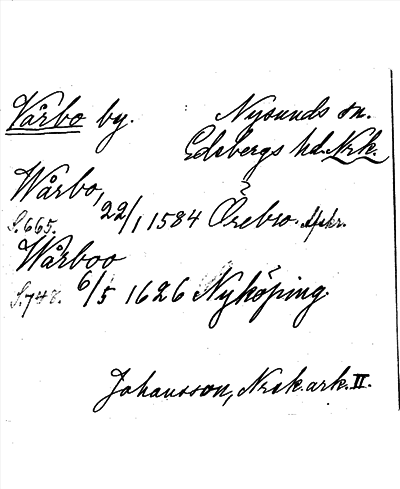 Vårbo by. Nysunds sn.
Edsbergs hd. Nrk.
Wårbo,
S. 665. 22/1 1584 Örebro. Afskr.
Wårboo
S. 748. 6/5 1626 Nyköping
Johansson, Nrsk. ark. II.